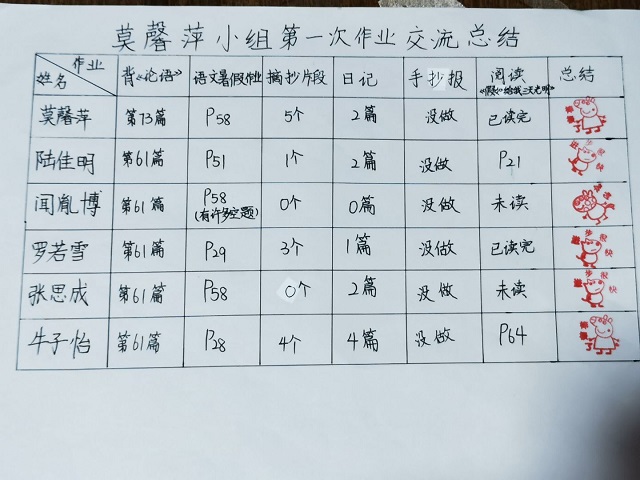 莫馨萍小组第一次作业交流总结
作业 姓名 背《论语》 语文暑假作业 摘抄片段 日记 手抄报 阅读 《假如给我三天光明》 总结
莫馨萍 第73篇 P58 5个 2篇 没做 已读完
陆佳明 第61篇 P51 1个 2篇 没做 P21
闻胤博 第61篇 P58 (有许多空题) 0个 0篇 没做 未读
罗若雪 第61篇 P29 3个 1篇 没做 已读完
张思成 第61篇 P58 0个 2篇 没做 未读
牛子怡 第61篇 P28 4个 4篇 没做 P64